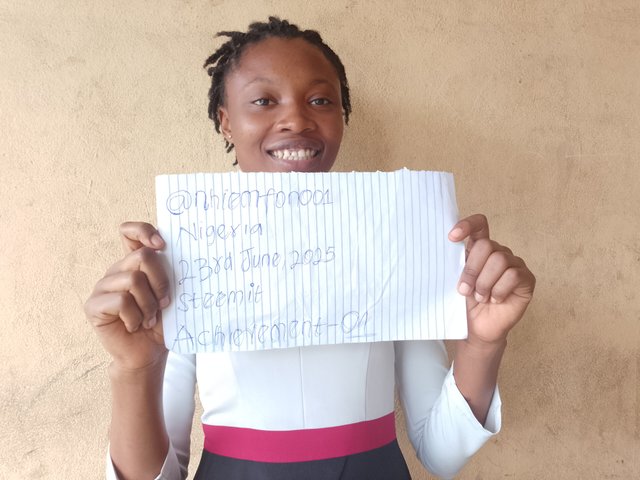 @nhiemfon001
Nigeria
23rd June, 2025
Steemit
Achievement-01